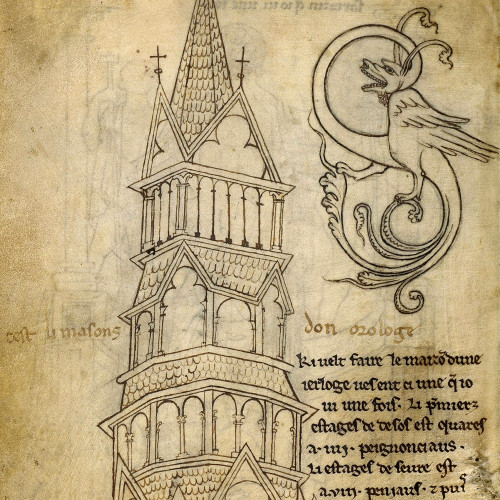 cest li masons don orologe
Ki velt faire le maizõ dune
ierloge ves ent ci une q̃ io
vi une fois. Li p̃mierz
estages de desos est quares
a .iiii. peignonciaus.
Li estages de seure est
a .viii. peniaus. ⁊ puis